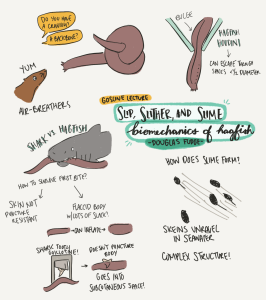 DO YOU HAVE
A CRANIUM?
A BACKBONE?
YUM
AIR-BREATHERS
BULGE
HAGFISH
HOUDINI
CAN ESCAPE THROUGH
GOSLINE LECTURE
SLIP, SLITHER, AND SLIME
biomechanics of hagfish
-DOUGLAS FUDGE-
SHARK VS HAGFISH
HOW TO SURVIVE FIRST BITE?
SKIN NOT
PUNCTURE
RESISTANT
FLACCID BODY
W/LOTS OF SLACK!
CAN INFLATE
SHARK TOOTH
GUILLOTINE!
DOESN'T PUNCTURE
BODY
GOES INTO
SUBCUTANEOUS SPACE!
HOW DOES SLIME FORM?
SKEINS UNRAVEL
IN SEAWATER
COMPLEX STRUCTURE!